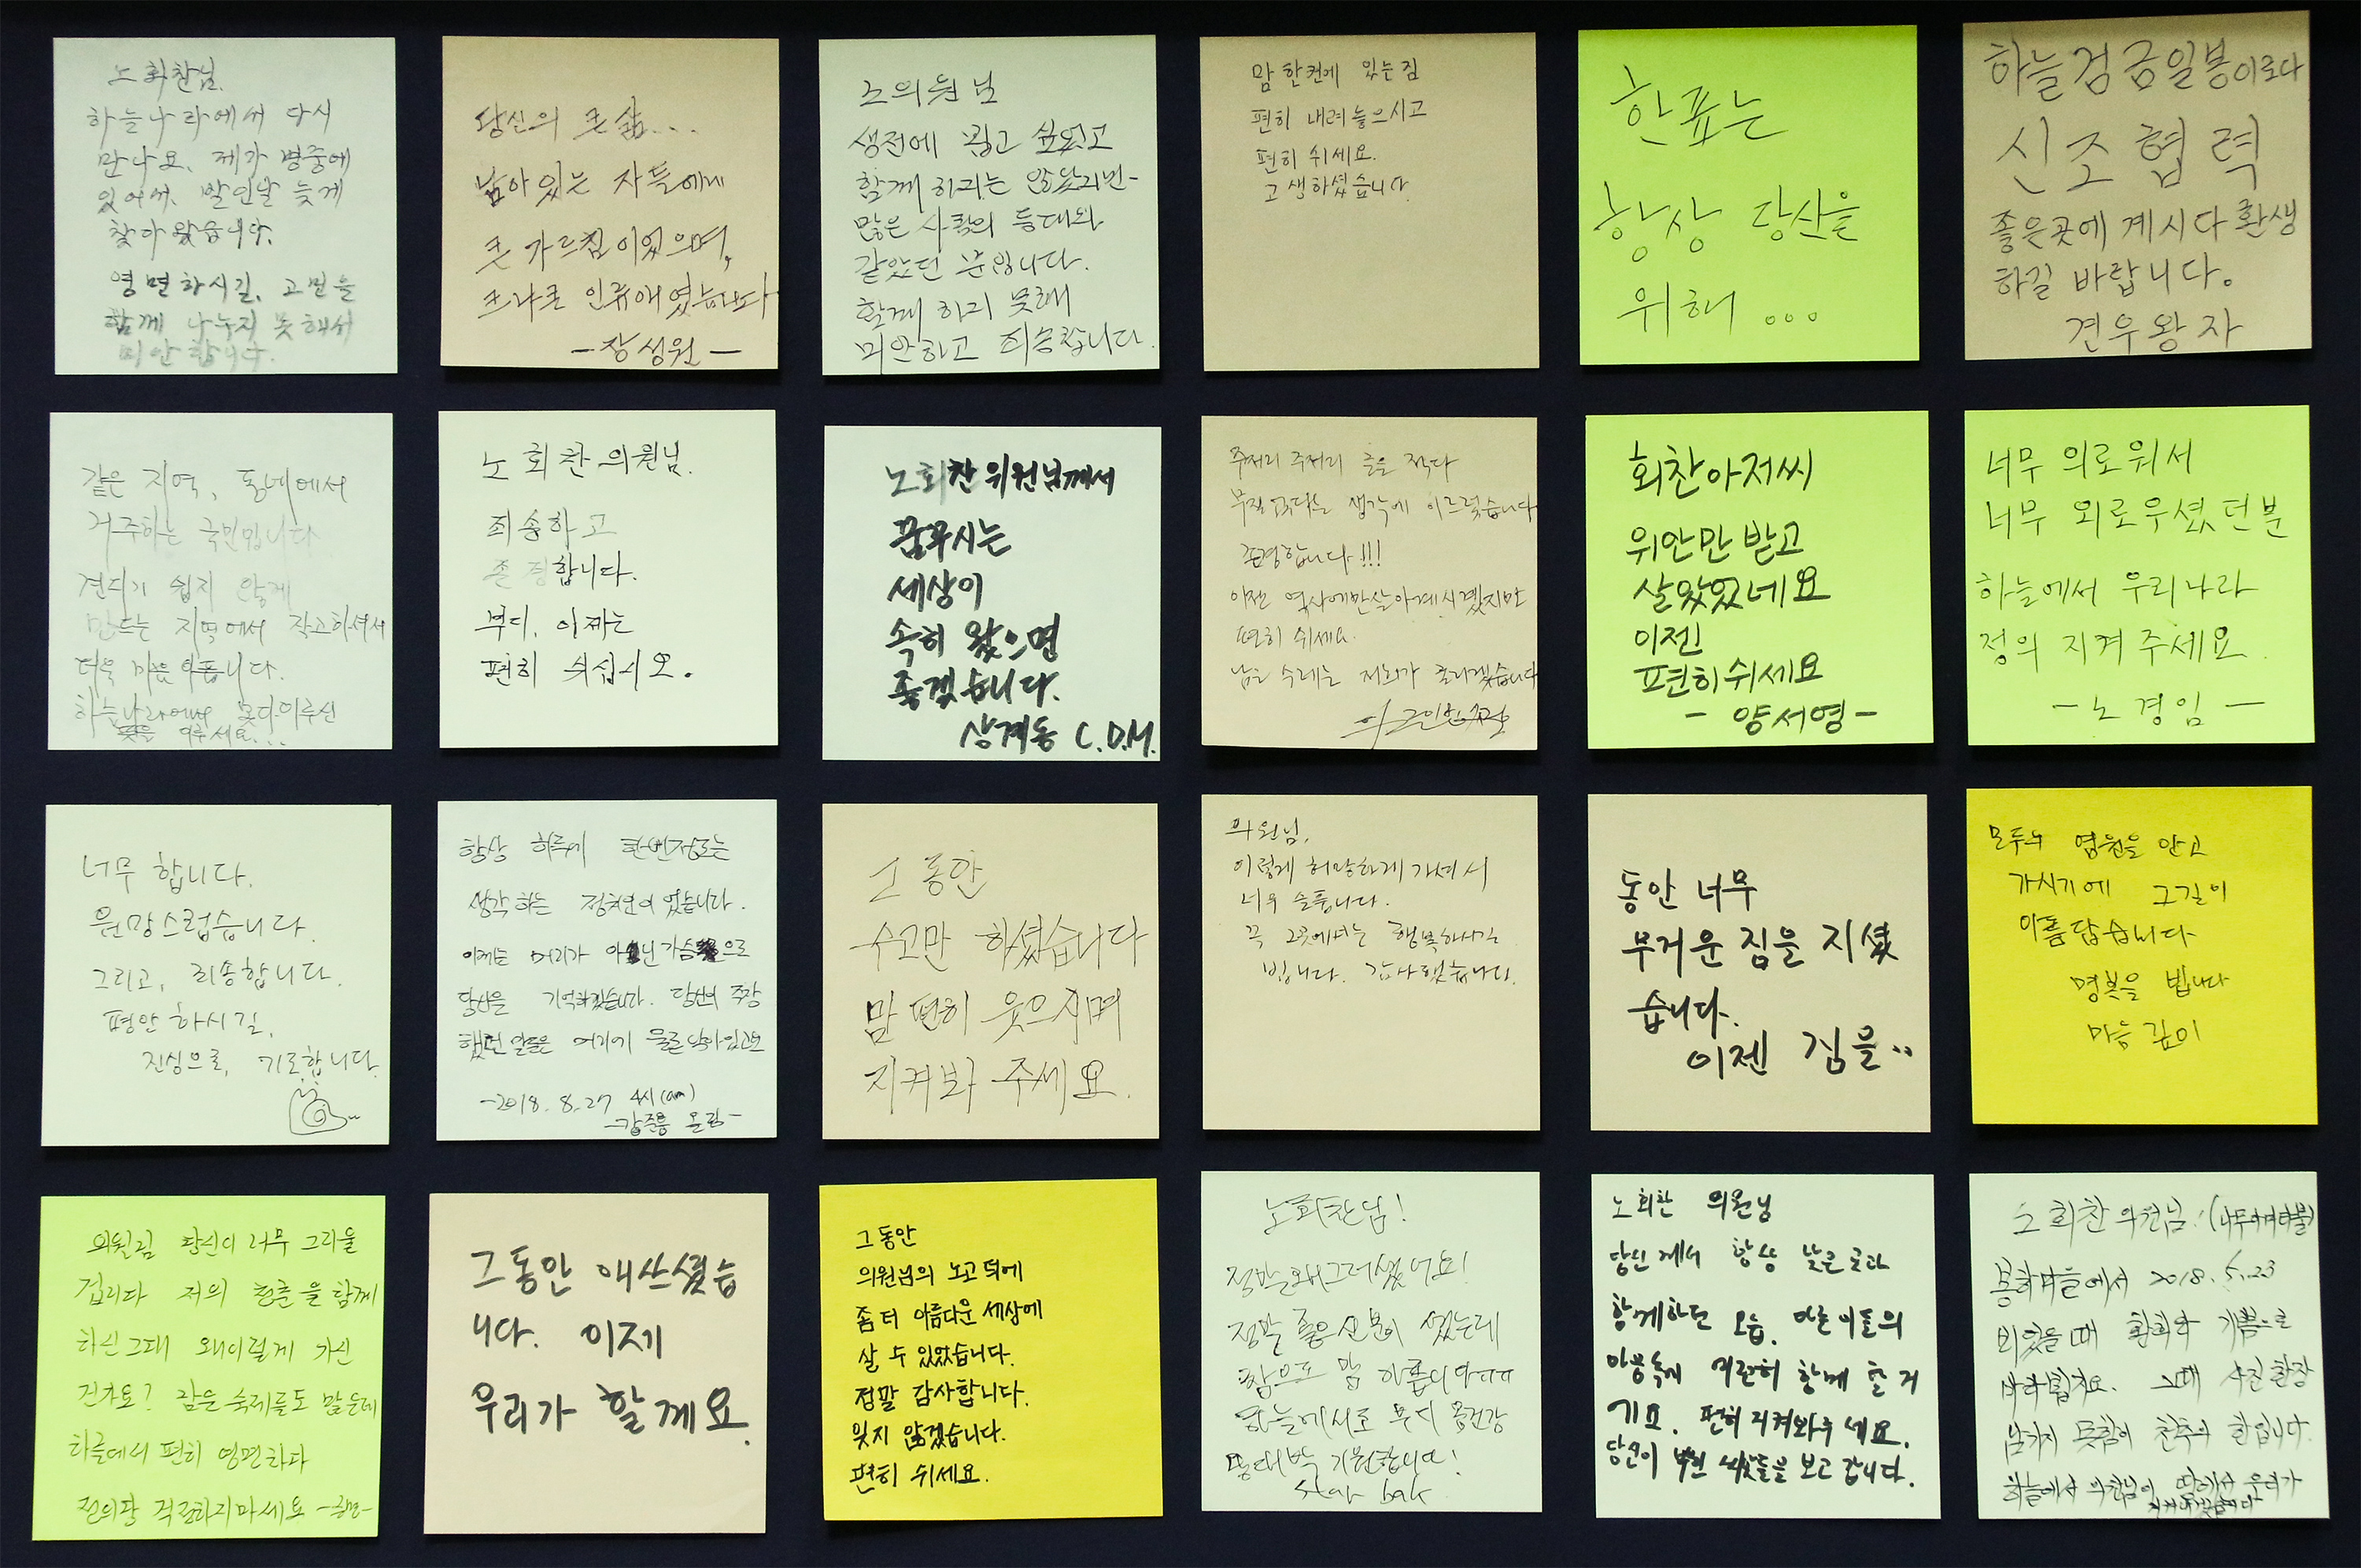 노회찬님.
하늘나라에서 다시
만나요. 제가 병중에
있어서, 발인날 늦게
찾아왔습니다.
영면하시길, 고민을
함께 나누지 못해서
미안합니다.
당신의 큰 삶...
남아있는 자들에게
큰 가르침이었으며,
크나큰 인류애였습니다
-장성원-
노의원님
생전에 뵙고 싶었고
함께 하지는 않았지만-
많은 사람의 등대와
같았던 분입니다.
함께 하지 못해
미안하고 죄송합니다.
맘 한켠에 있는 짐
편히 내려놓으시고
편히 쉬세요.
고생하셨습니다.
한표는
항상 당신을
위해...
하늘검금일봉이로다
신조협력
좋은곳에 계시다 환생
하길 바랍니다.
견우왕자
같은 지역, 동네에서
거주하는 국민입니다
견디기 쉽지 않게
만드는 지역에서 작고하셔서
더욱 마음 아픕니다.
하늘나라에서 못다 이루신
뜻을 이루세요...
노회찬 의원님.
죄송하고
존경합니다.
부디, 이제는
편히 쉬십시오.
노회찬 위원님께서
꿈꾸시는
세상이
속히 왔으면
좋겠습니다.
상계동 C.D.M.
주저리 주저리 글을 적다
부질없다는 생각에 이르렀습니다
존경합니다!!!
이젠 역사에만 살아계시겠지만
편히 쉬세요.
남은 수레는 저희가 굴리겠습니다
회찬아저씨
위안만 받고
살았었네요
이젠
편히쉬세요
- 양서영-
너무 의로워서
너무 외로우셨던분
하늘에서 우리나라
정의 지켜주세요.
-노경임-
너무 합니다.
원망스럽습니다.
그리고, 죄송합니다.
평안하시길,
진심으로, 기도합니다.
항상 하루에 한번정도는
생각하는 정치인이었습니다.
이제는 머리가 아닌 가슴으로
당신을 기억하겠습니다. 당신의 주장
했던 말들은 여기에 물론 남아있고요
-2018. 8.27 4시(am)
그동안
수고만 하셨습니다
맘 편히 웃으시며
지켜봐 주세요.
의원님,
이렇게 허망하게 가셔서
너무 슬픕니다.
꼭 그곳에서는 행복하시길
빕니다. 감사했습니다.
동안 너무
무거운 짐을 지셨
습니다.
이젠 짐을..
모두의 염원을 안고
가시기에 그길이
아름답습니다
명복을 빕니다
마음 깊이
의원님 당신이 너무 그리울
겁니다 저의 청춘을 함께
하신 그대 왜이렇게 가신
건가요? 남은 숙제들도 많은데
하늘에서 편히 영면하다
정의당 걱정하지마세요
그동안 애쓰셨습
니다. 이제
우리가 할게요.
그동안
의원님의 노고덕에
좀 더 아름다운 세상에
살 수 있었습니다.
정말 감사합니다.
잊지 않겠습니다.
편히 쉬세요.
노회찬님!
정말 왜그러셨어요!
정말 좋은신분이셨는데
참으로 맘 아픕니다ㅠㅠ
하늘에서도 부디 몸건강
만대박 기원합니다!
Star bak
노회찬 의원님
당신께서 항상 낮은 곳과
함께하던 모습, 많은 이들의
마음속에 영원히 함께 할 거
에요. 편히 지켜봐주세요.
당신이 뿌린 씨앗들을 보고 갑니다.
노회찬 의원님.
봉하마을에서 2018.5.23
뵈었을때 환희와 기쁨으로
바라봤지요. 그때 사진 한장
남기지 못함이 천추의 한입니다.
하늘에서 의원님이 땅에서 우리가